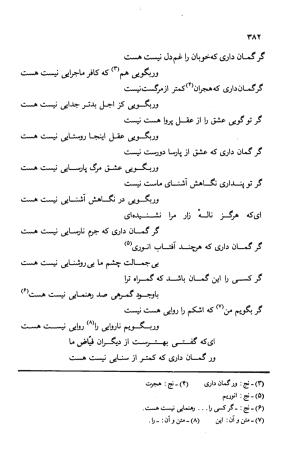 ۳۸۲
گر گمان داری که خوبان را غم دل نیست هست
وربگویی هم(۳) که کافر ماجرایی نیست هست
گر گمان داری که هجران(۴) کمتر از مرگست نیست
وربگویی کز اجل بدتر جدایی نیست هست
گر تو گویی عشق را از عقل پروا هست نیست
وربگویی عقل اینجا روستایی نیست هست
گر گمان داری که عشق از پارسا دورست نیست
وربگویی عشق مرگ پارسایی نیست هست
گر تو پنداری نگاهش آشنای ماست نیست
وربگویی در نگاهش آشنایی نیست هست
ای که هرگز ناله زار مرا نشنیده‌ای
گر گمان داری که جرم نارسایی نیست هست
گر گمان داری که هرچند آفتاب انوری(۵)
بی‌جمالت چشم ما بی‌روشنایی نیست هست
گر کسی را این گمان باشد که گمراه ترا
باوجود گمرهی صد رهنمایی نیست هست(۶)
گر بگویم من(۷) که اشکم را روایی هست نیست
وربگویم ناروایی را(۸) روایی نیست هست
ای که گفتی بهترست از دیگران فیّاض ما
ور گمان داری که کمتر از سنایی نیست هست
(۳) - نج: ور گمان داری (۴) - نج: هجرت
(۵) - نج: انوریم
(۶) - نج: - گر کسی را . . . رهنمایی نیست هست.
(۷) - متن و آن: این (۸) - متن و آن: - را.